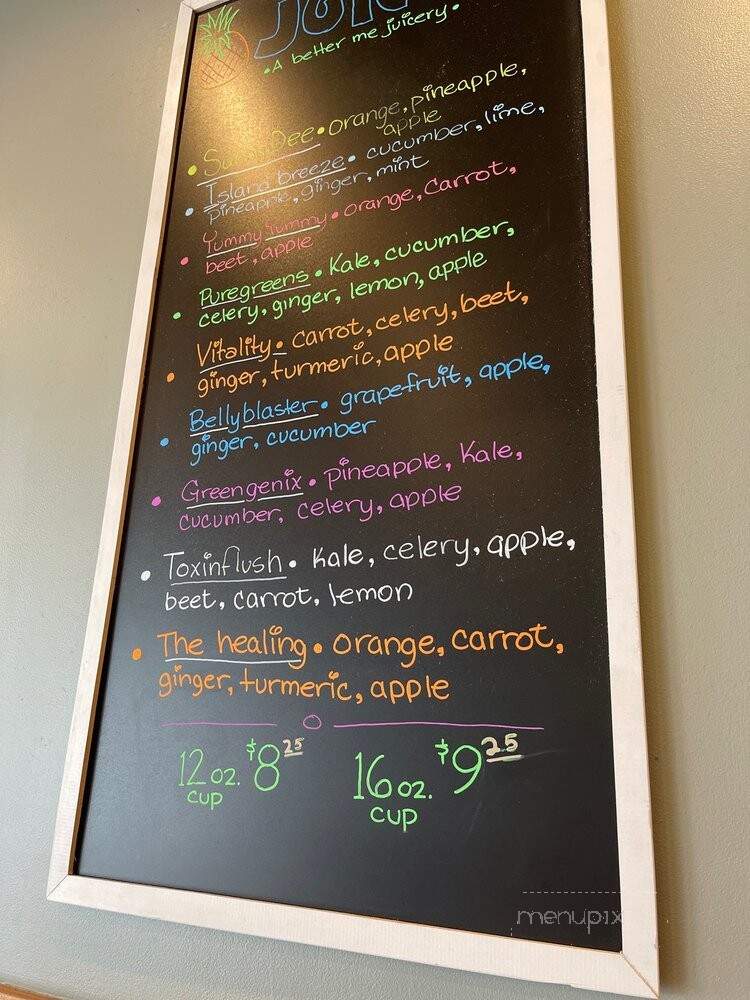 • A better me juicery •
• Sunny Dee • orange, pineapple,
apple
• Island breeze • cucumber, lime,
pineapple, ginger, mint
• Yummy Tummy • orange, carrot,
beet, apple
• Puregreens • Kale, cucumber,
celery, ginger, lemon, apple
• Vitality • carrot, celery, beet,
ginger, turmeric, apple
• Bellyblaster • grapefruit, apple,
ginger, cucumber
• Greengenix • pineapple, Kale,
cucumber, celery, apple
• Toxinflush • Kale, celery, apple,
beet, carrot, lemon
• The healing • orange, carrot,
ginger, turmeric, apple
12 oz. $8 25 16 oz. $9 25
cup cup
menupix